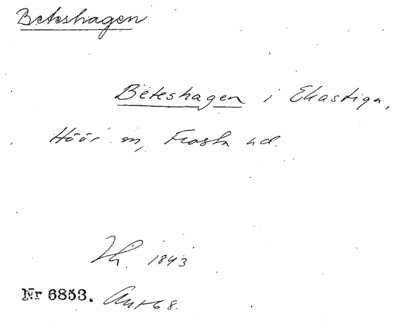 Beteshagen
Beteshagen i Ekastiga,
Höör sn, Frosta hd.
Th. 1843
Nr 6853. Ant 68.